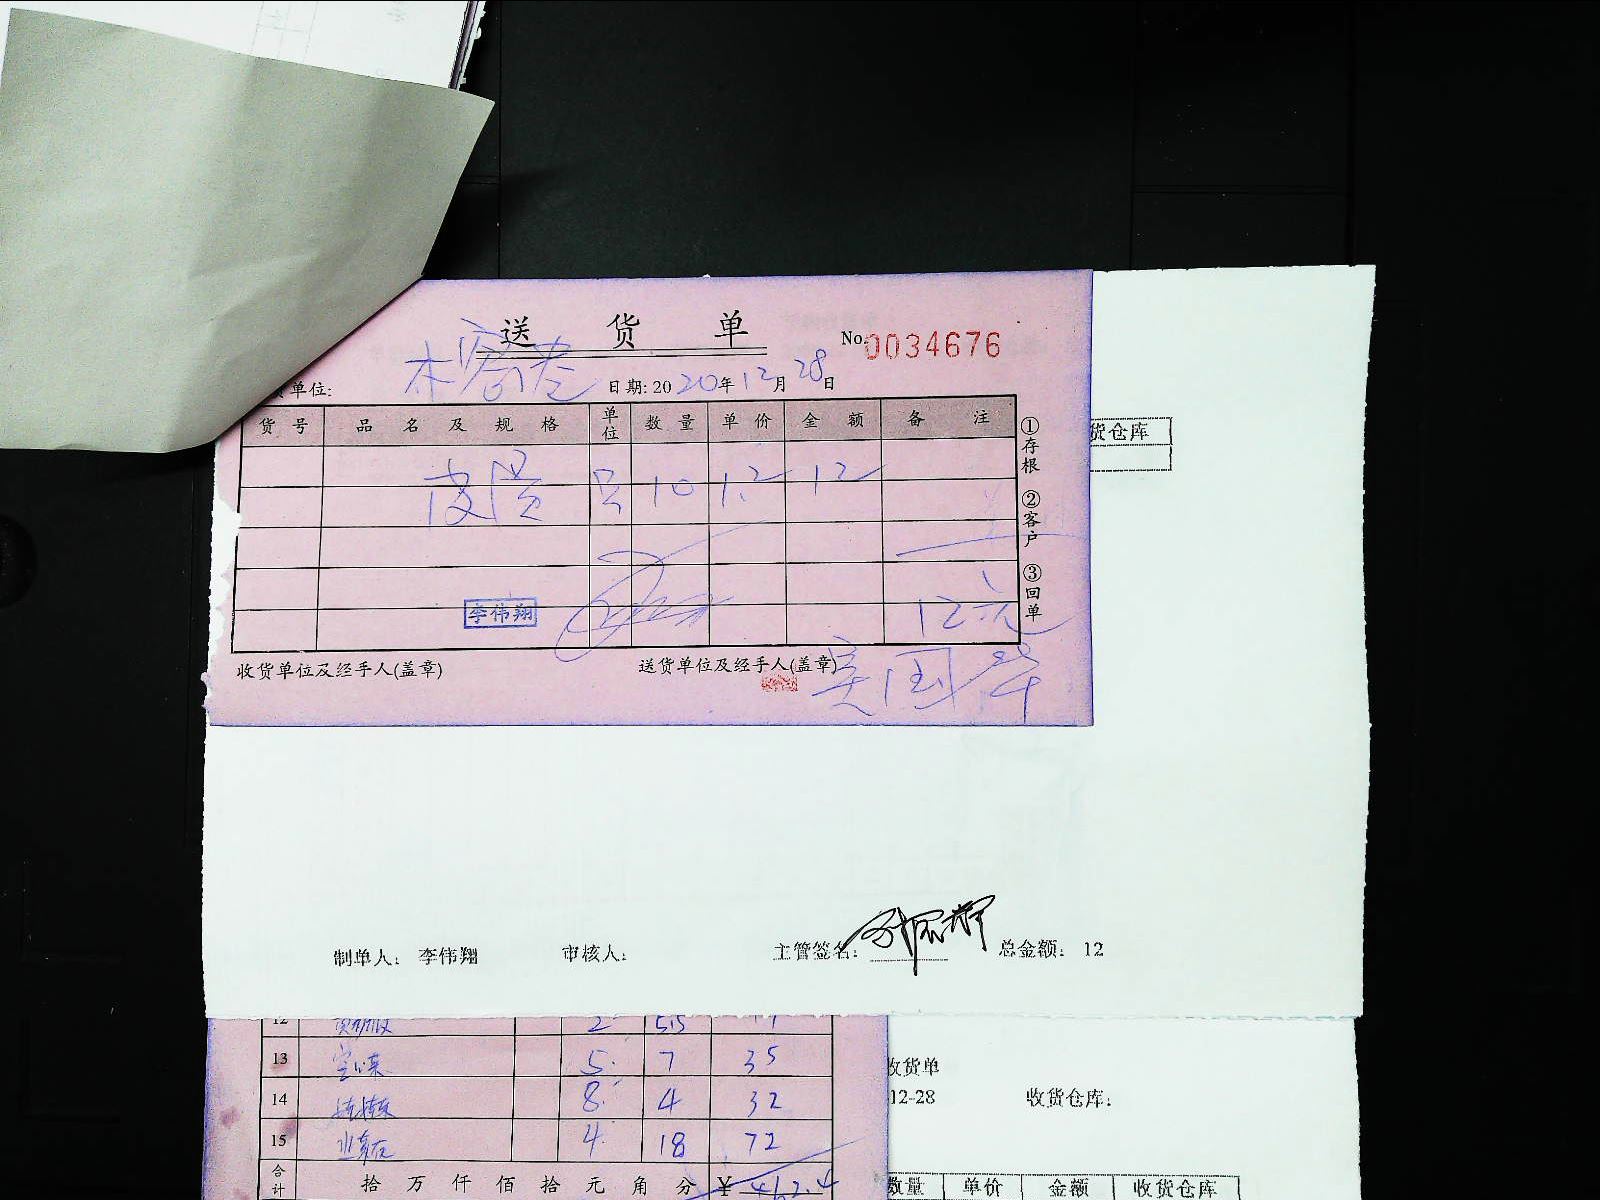 送 货 单
No. 0034676
单位: 木 日期: 2020年12月28日
货 号 品 名 及 规 格 单位 数 量 单 价 金 额 备 注
皮蛋 只 10 1.2 12
12元
李伟翔
①存根 ②客户 ③回单
收货单位及经手人(盖章) 送货单位及经手人(盖章) 吴国华
货仓库
制单人: 李伟翔 审核人: 主管签名: 总金额: 12
12 2 5.5 11
13 5 7 35
14 8 4 32
15 4 18 72
合计 拾 万 仟 佰 拾 元 角 分 ¥ 462.4
收货单
12-28 收货仓库:
数量 单价 金额 收货仓库